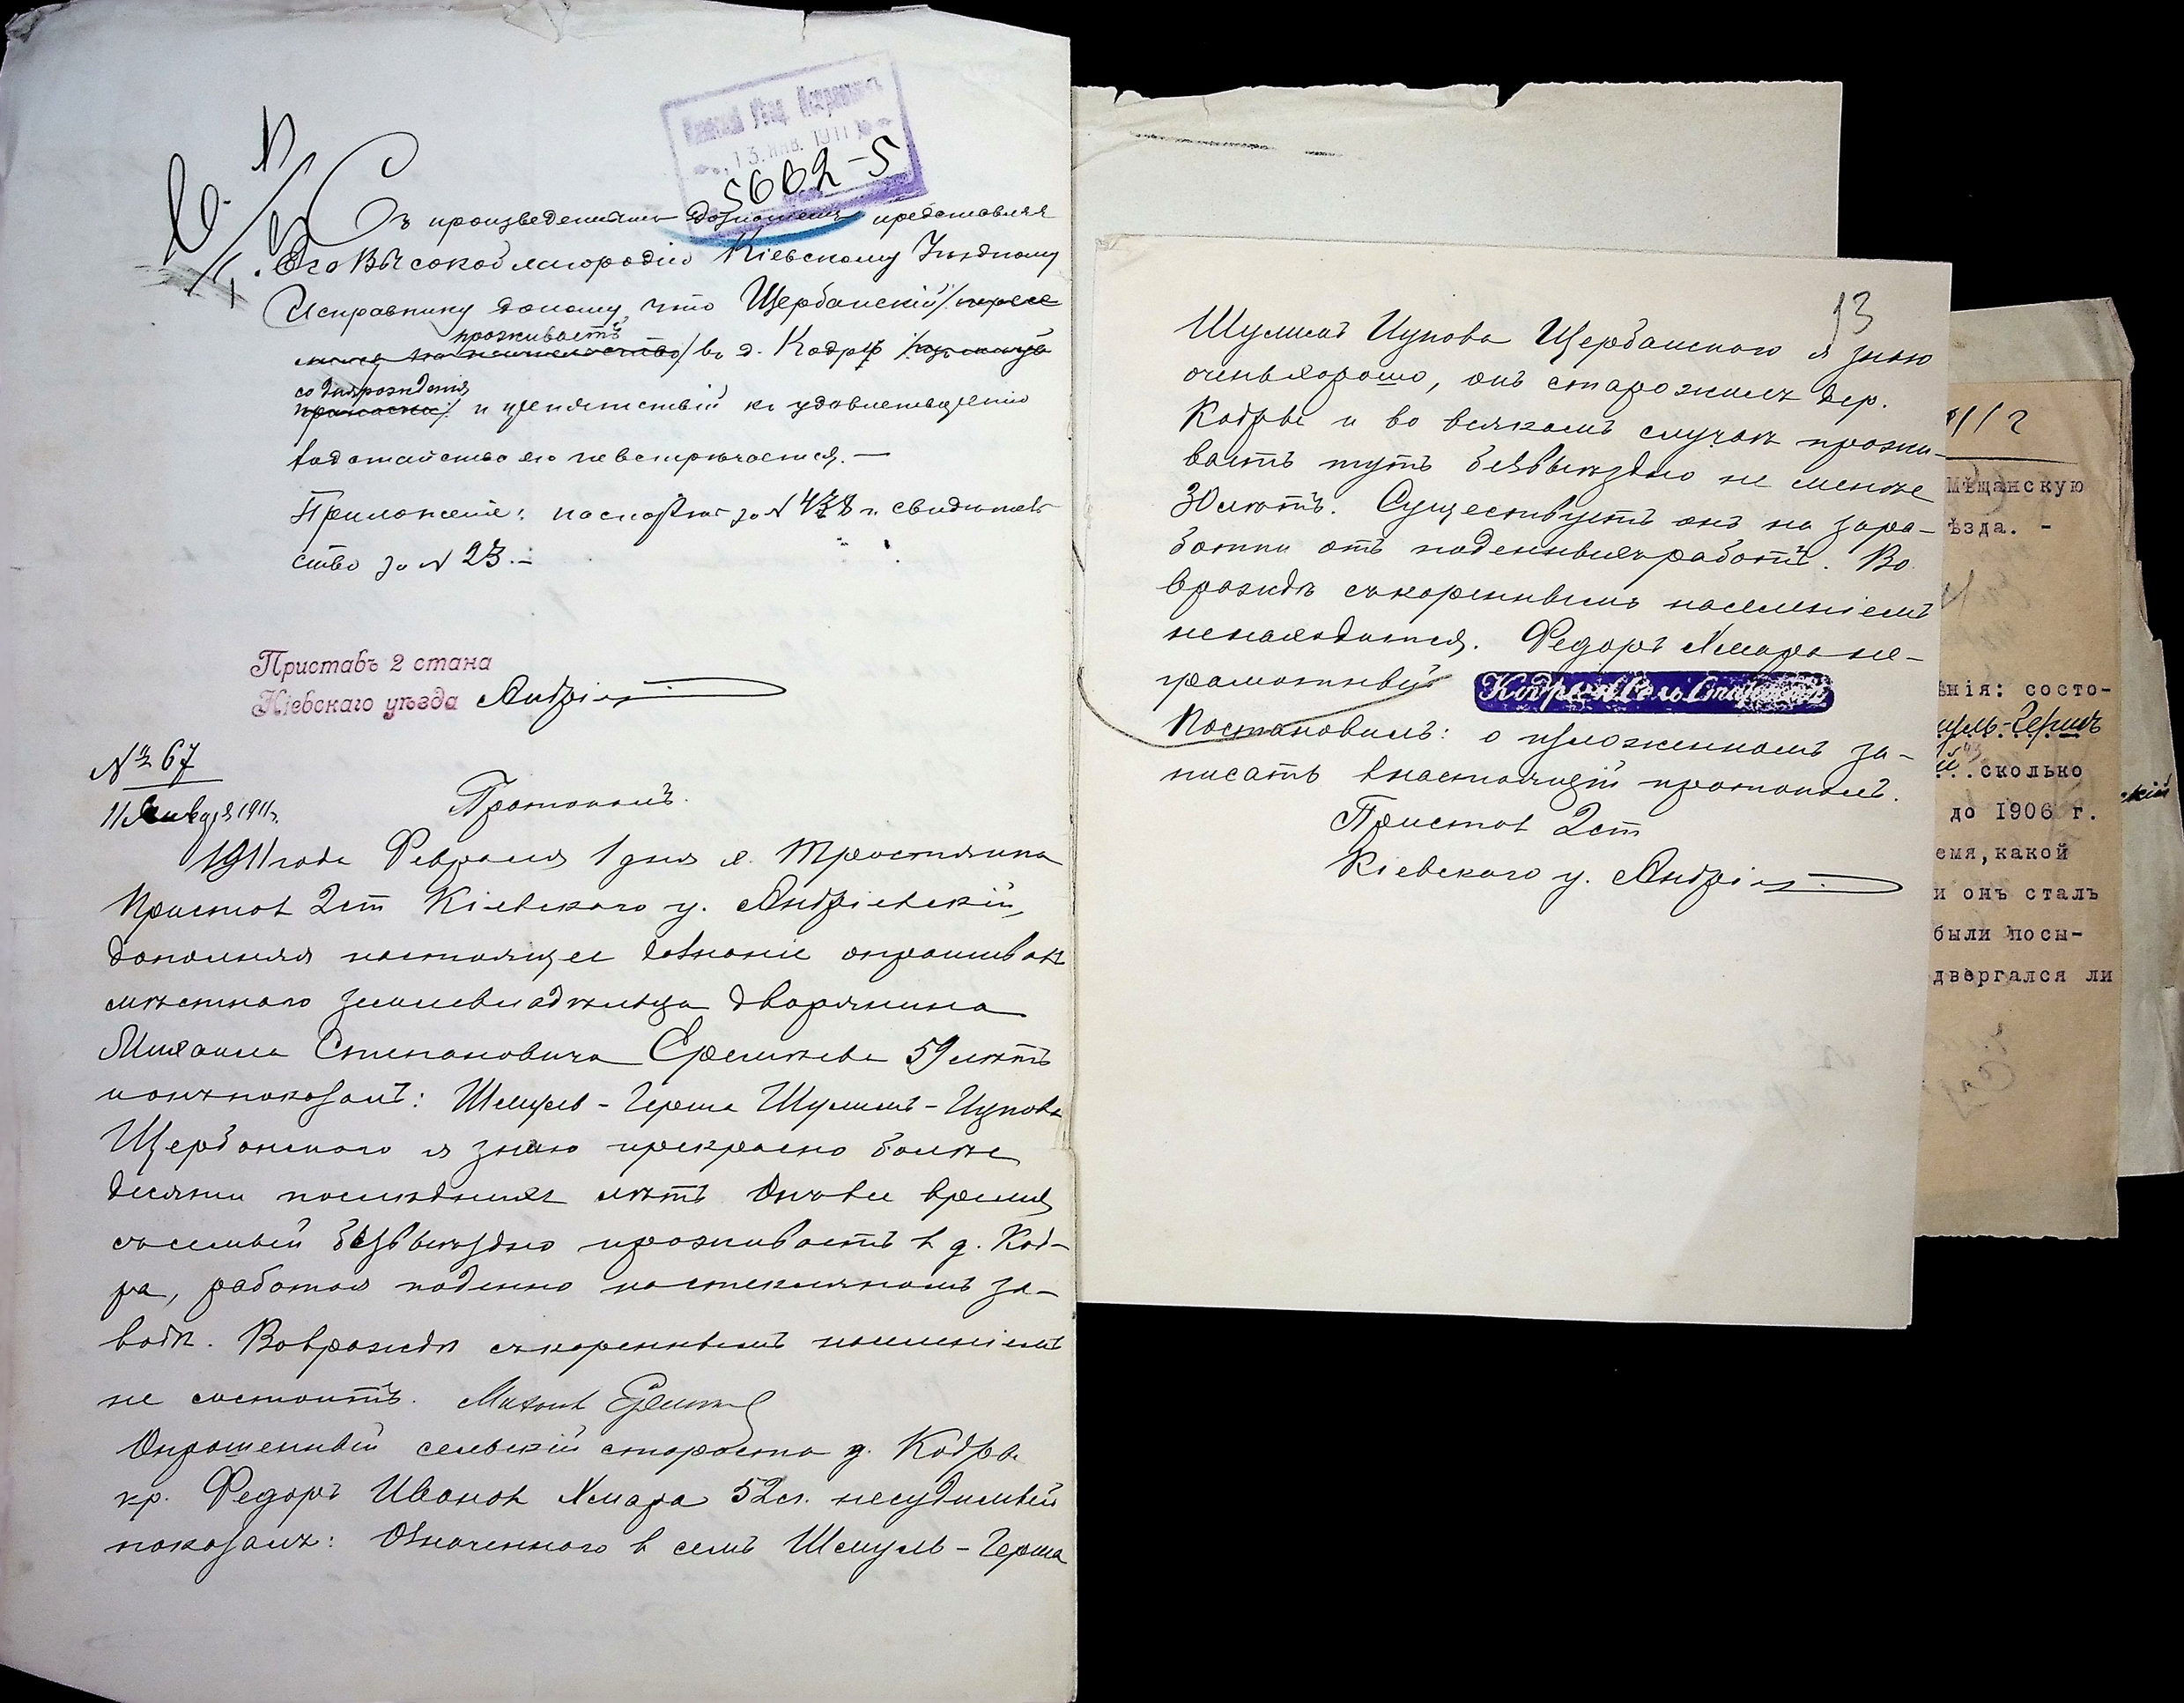 Кіевскій Уѣзд. Исправникъ
13. ЯНВ. 1911
5662-5
Съ произведеннымъ дознаніемъ представляя
Его Высокоблагородію Кіевскому Уѣздному
Исправнику доношу, что Щербанскій /
проживаетъ
/ въ д. Кодрѣ /
со дня рожденія
/ и препятствій къ удовлетворенію
ходатайства его не встрѣчается. —
Приложеніе: паспортъ за № 438 и свидѣтель
ство за № 23. —
Приставъ 2 стана
Кіевскаго уѣзда Андріевскій
№ 67
11 Января 1911 г.
Протоколъ.
1911 года Февраля 1 дня я. Мотыжинъ
Приставъ 2 ст Кіевскаго у. Андріевскій,
дополняя настоящее дознаніе опрашивалъ
мѣстнаго землевладѣльца дворянина
Михаила Степановича Еремѣева 59 лѣтъ
и онъ показалъ: Шмуль-Герша Шулимъ-Ицкова
Щербанскаго я знаю прекрасно болѣе
десяти послѣднихъ лѣтъ Онъ все время
съ семьей безвыѣздно проживаетъ в д. Код-
ра, работая поденно на стеклянномъ за-
водѣ. Во враждѣ съ кореннымъ населеніемъ
не состоитъ. Михаилъ Еремѣевъ
Опрошенный сельскій староста д. Кодры
кр. Федоръ Ивановъ Хмара 52 л. несудимый
показалъ: Означеннаго в семъ Шмуль-Герша
13
Шулимъ Ицкова Щербанскаго я знаю
очень хорошо, онъ старожилъ дер.
Кодры и во всякомъ случаѣ прожи-
ваетъ тутъ безвыѣздно не менѣе
30 лѣтъ. Существуетъ онъ на зара-
ботки отъ поденныхъ работъ. Во
враждѣ съ кореннымъ населеніемъ
не находится. Федоръ Хмара не-
грамотный Кодрянск. Сельск. Староста
Постановилъ: о изложенномъ за-
писать в настоящій протоколъ.
Приставъ 2 ст
Кіевскаго у. Андріевскій
11 г
Мѣщанскую
ѣзда. -
нія: состо-
муль-Гершъ
...сколько
до 1906 г.
емя, какой
и онъ сталъ
были посы-
двергался ли
скій